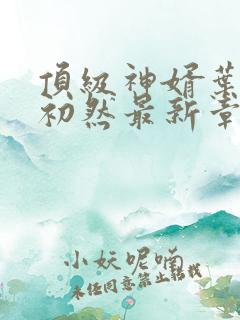 頂級神婿葉
初然最新章
小妖呢喃
未经同意禁止转载